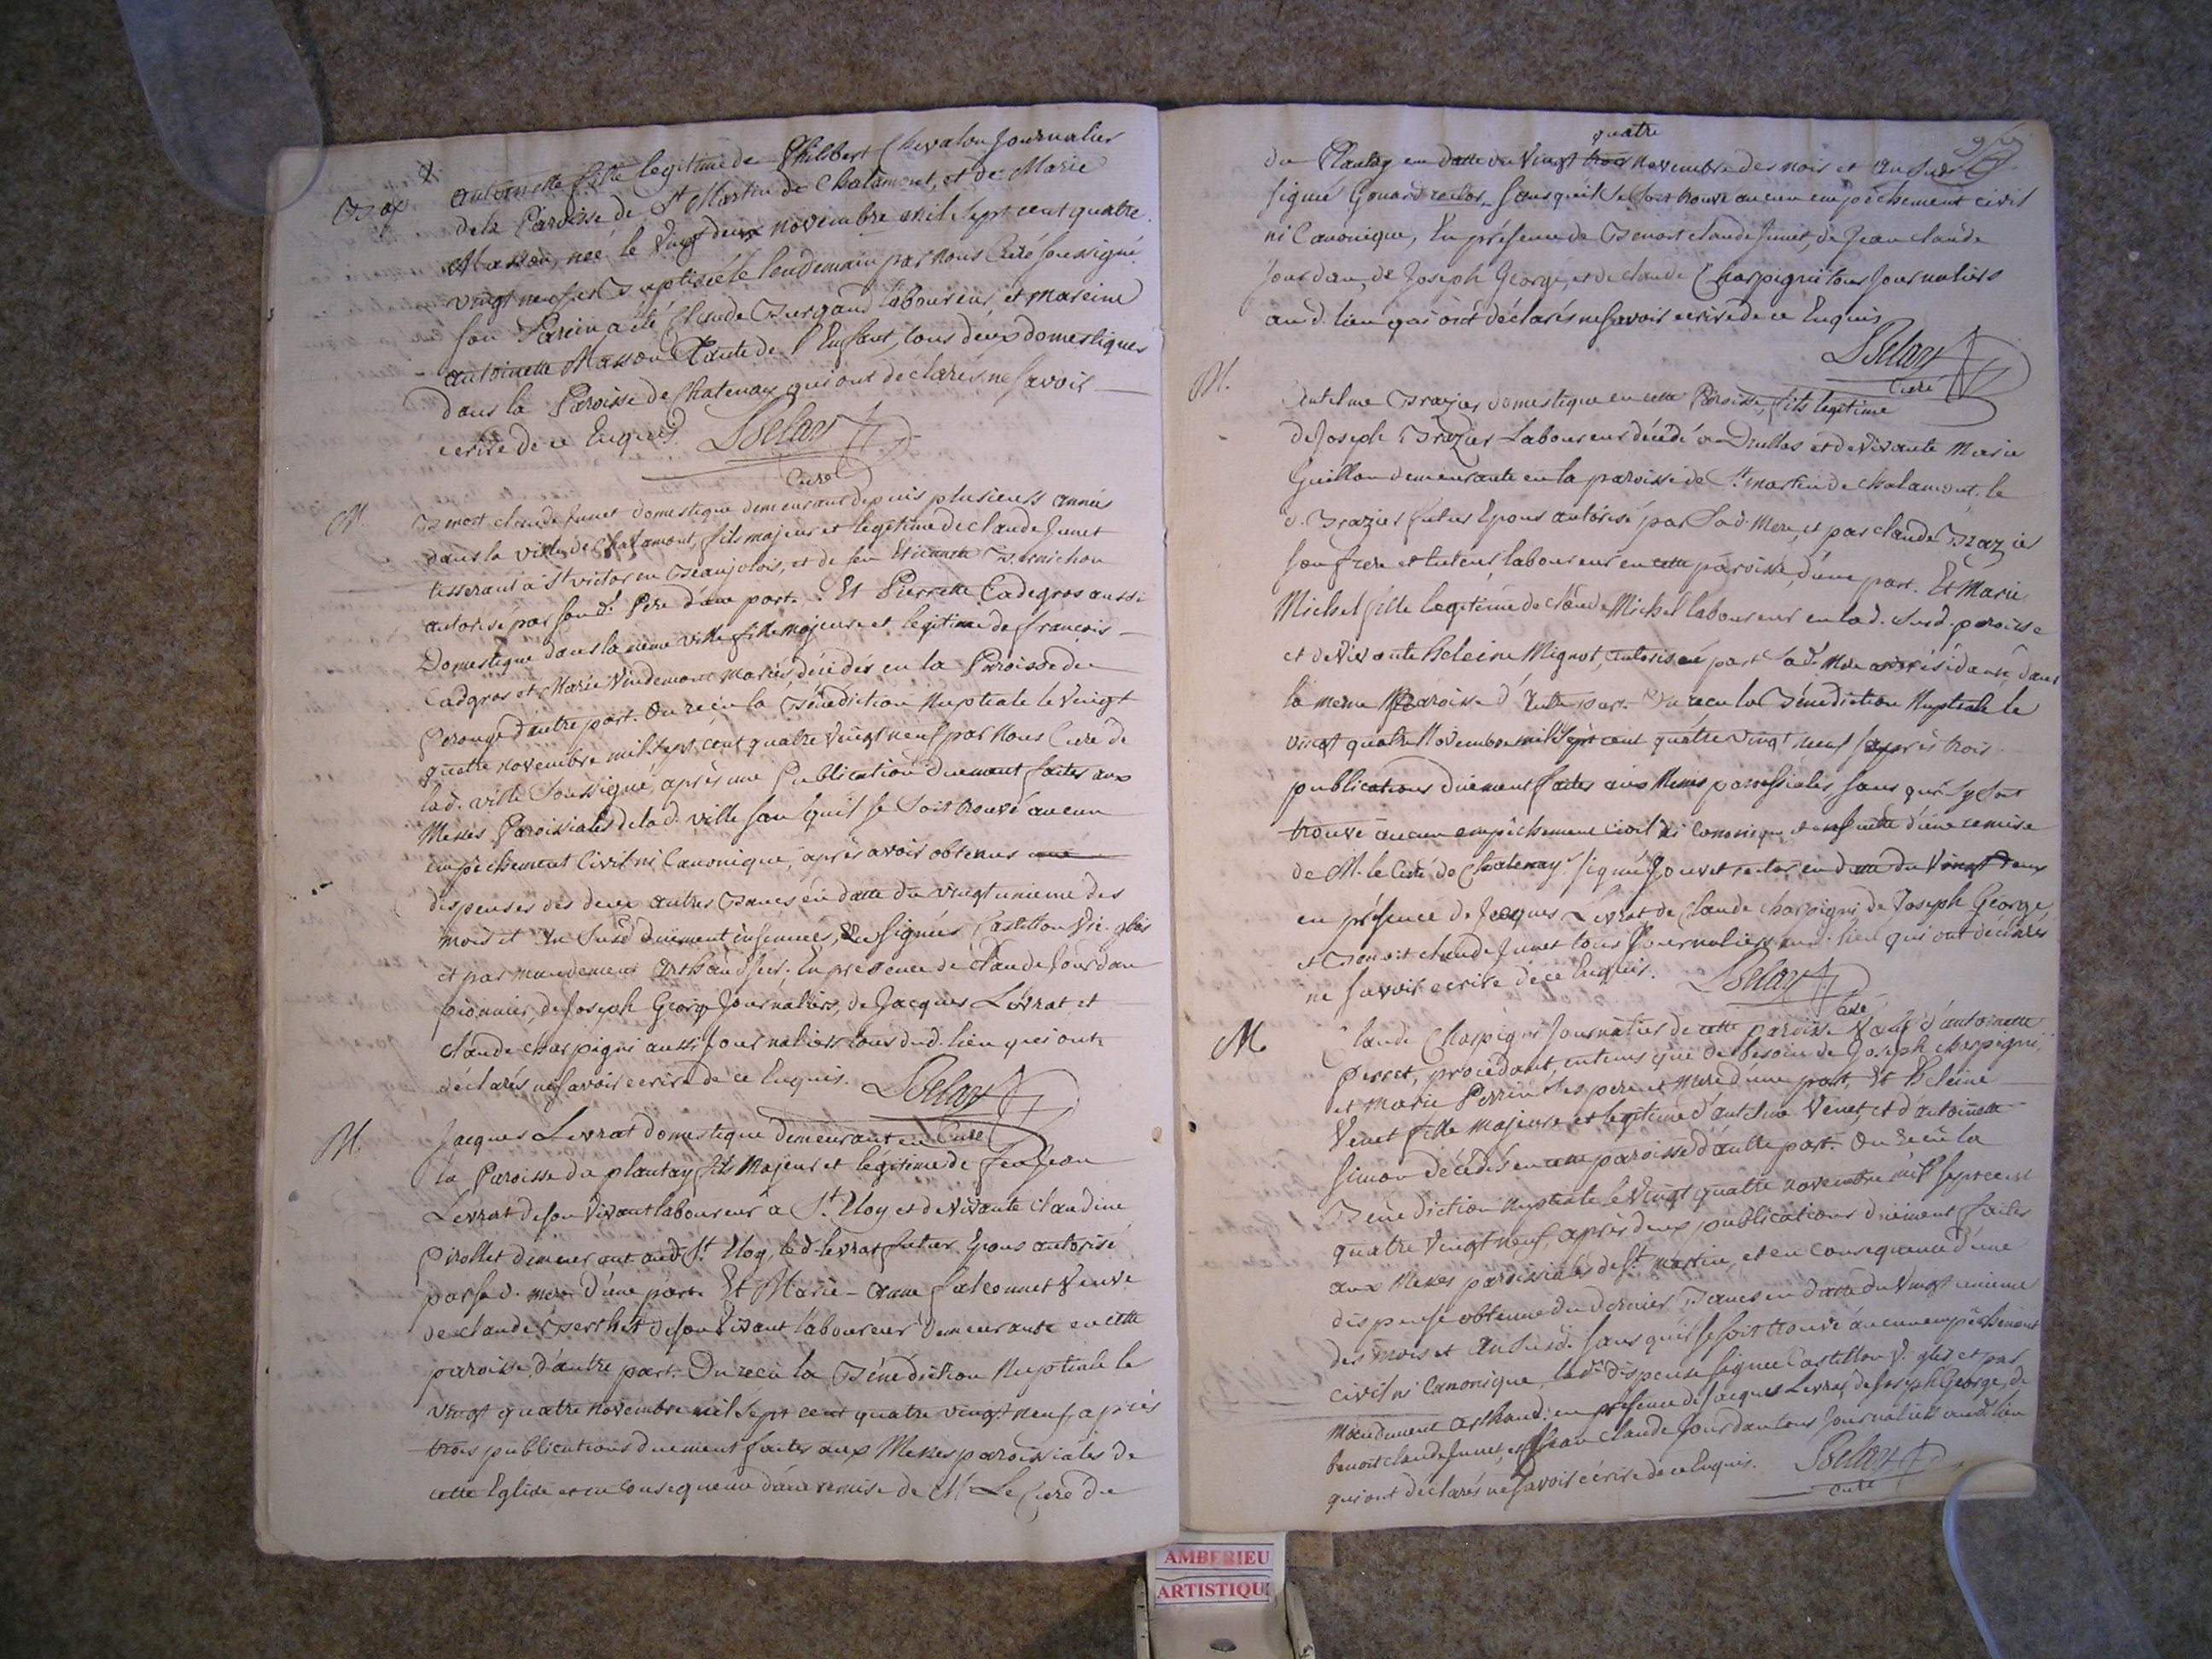 Bap. antoinette fille legitime de Philibert Chevalon Journalier
dela Paroisse de St Martin de Chalamont, et de Marie
Masson, née le vingt deux novembre mil sept cent quatre
vingt neuf et Baptisée le lendemain par nous Curé soussigné
son Parein a été Claude Burgaud laboureur et mareine
antoinette Masson Tante de l'Enfant, tous deux domestiques
dans la Paroisse de Chatenay qui ont déclarés ne savoir
ecrire de ce Enquis.
Curé
M. Benoit claude Junet domestique demeurant depuis plusieurs années
dans la ville de Chalamont, fils majeur et legitime de claude Junet
tisserant a St victor en Beaujolois, et de feu Etiennette Bernichon
autorisé par son d. Pere d'une part. Et Pierrette Cadegros aussi
Domestique dans la même ville fille majeure et legitime de francois
Cadgros et Marie Vindemont mariés, décédés en la Paroisse de
Perouge d'autre part. On reçu la Bénédiction Nuptiale le Vingt
quatre novembre mil sept cent quatre Vingt neuf par Nous Curé de
lad. ville Soussigné, après une Publication duement faites aux
Messes Paroissiales de lad. ville san qu'il se soit trouvé aucun
empêchement Civil ni Canonique, après avoir obtenus
dispenses des deux autres Bancs en datte du vingt unieme des
mois et an susd. duement insinuées, signées Castillon Vic. glés
et par mandement arthaud secr. En présence de claude Jourdan
pionnier, de Joseph George Journaliers, de Jacques Levrat, et
claude charpigni aussi Journaliers tous dud. lieu qui ont
déclarés ne savoir ecrire de ce Enquis.
Curé
M. Jacques Levrat domestique demeurant en
la Paroisse du plantay fils Majeur et légitime de feu Jean
Levrat de son Vivant laboureur a St. Eloy et de Vivante claudine
Pirollet demeurant aud. St. Eloy, led. levrat futur Epous autorisé
par sad. mere d'une part. Et Marie-anne falconnet Veuve
de claude Berthet de son Vivant laboureur demeurante en cette
paroisse, d'autre part. On reçu la Bénédiction Nuptiale le
vingt quatre novembre mil sept cent quatre vingt neuf, après
trois publications duement faites aux Messes paroissiales de
cette Eglise et en consequence d'une remise de Mr. Le Curé du
quatre
du Plantay en datte du Vingt trois novembre des mois et an susd.
signé Gouard rector, sans qu'il se soit trouvé aucun empêchement civil
ni Canonique, En présence de Benoit claude Junet, de Jean claude
Jourdan, de Joseph George, et de claude Charpigni tous Journaliers
aud. lieu qui ont déclarés ne savoir ecrire de ce Enquis
Curé
M. Antelme Brazier domestique en cette Paroisse, fils legitime
de Joseph Brazier Laboureur décédé a Druillas et de Vivante Marie
Guillon demeurante en la paroisse de St. martin de chalamont. le
d. Brazier futur Epous autorisé par sad. Mere, et par claude Brazier
son frere et tuteur laboureur en cette paroisse, d'une part. Et Marie
Michel fille legitime de claude Michel laboureur en lad. susd. paroisse
et de Vivante heleine Mignot, autorisée part sad. Mere résidante dans
la meme Paroisse d'autre part. On reçu la Bénédiction Nuptiale le
vingt quatre Novembre mil sept cent quatre vingt neuf après trois
publications duement faites aux Messes paroissiales sans qu'il y soit
trouvé aucun empêchement civil ni Canonique et ensuite d'une remise
de M. le Curé de Chatenay signé Jouvet rector en date du Vingt deux
en présence de Jacques Levrat de claude Charpigni de Joseph George
et Benoit claude Junet tous Journaliers aud. lieu qui ont déclarés
ne savoir ecrire de ce Enquis.
Curé
M. Claude Charpigni Journalier de cette paroisse Veuf d'antoinette
Perret, procédant, en tems que de besoin de Joseph charpigni,
et Marie Perrin ses pere et Mere d'une part, Et heleine
Venet fille majeure et legitime d'antelme Venet, et d'antoinette
Simon décédés en cette paroisse d'autre part. On reçu la
Bénédiction Nuptiale le Vingt quatre novembre mil sept cent
quatre Vingt neuf, après deux publications duement faites
aux Messes paroissiales de St. martin, et en consequence d'une
dispense obtenue du dernier Bancs en datte du Vingt unieme
des mois et an susd. sans qu'il se soit trouvé aucun empêchement
civil ni Canonique, lad. dispense signée Castillon V. glés et par
mandement arthaud. en présence de Jacques Levrat, de Joseph George, de
benoit claude Junet, et Jean claude Jourdan tous Journaliers aud. lieu
qui ont déclarés ne savoir écrire de ce Enquis.
Curé
AMBERIEU
ARTISTIQUE